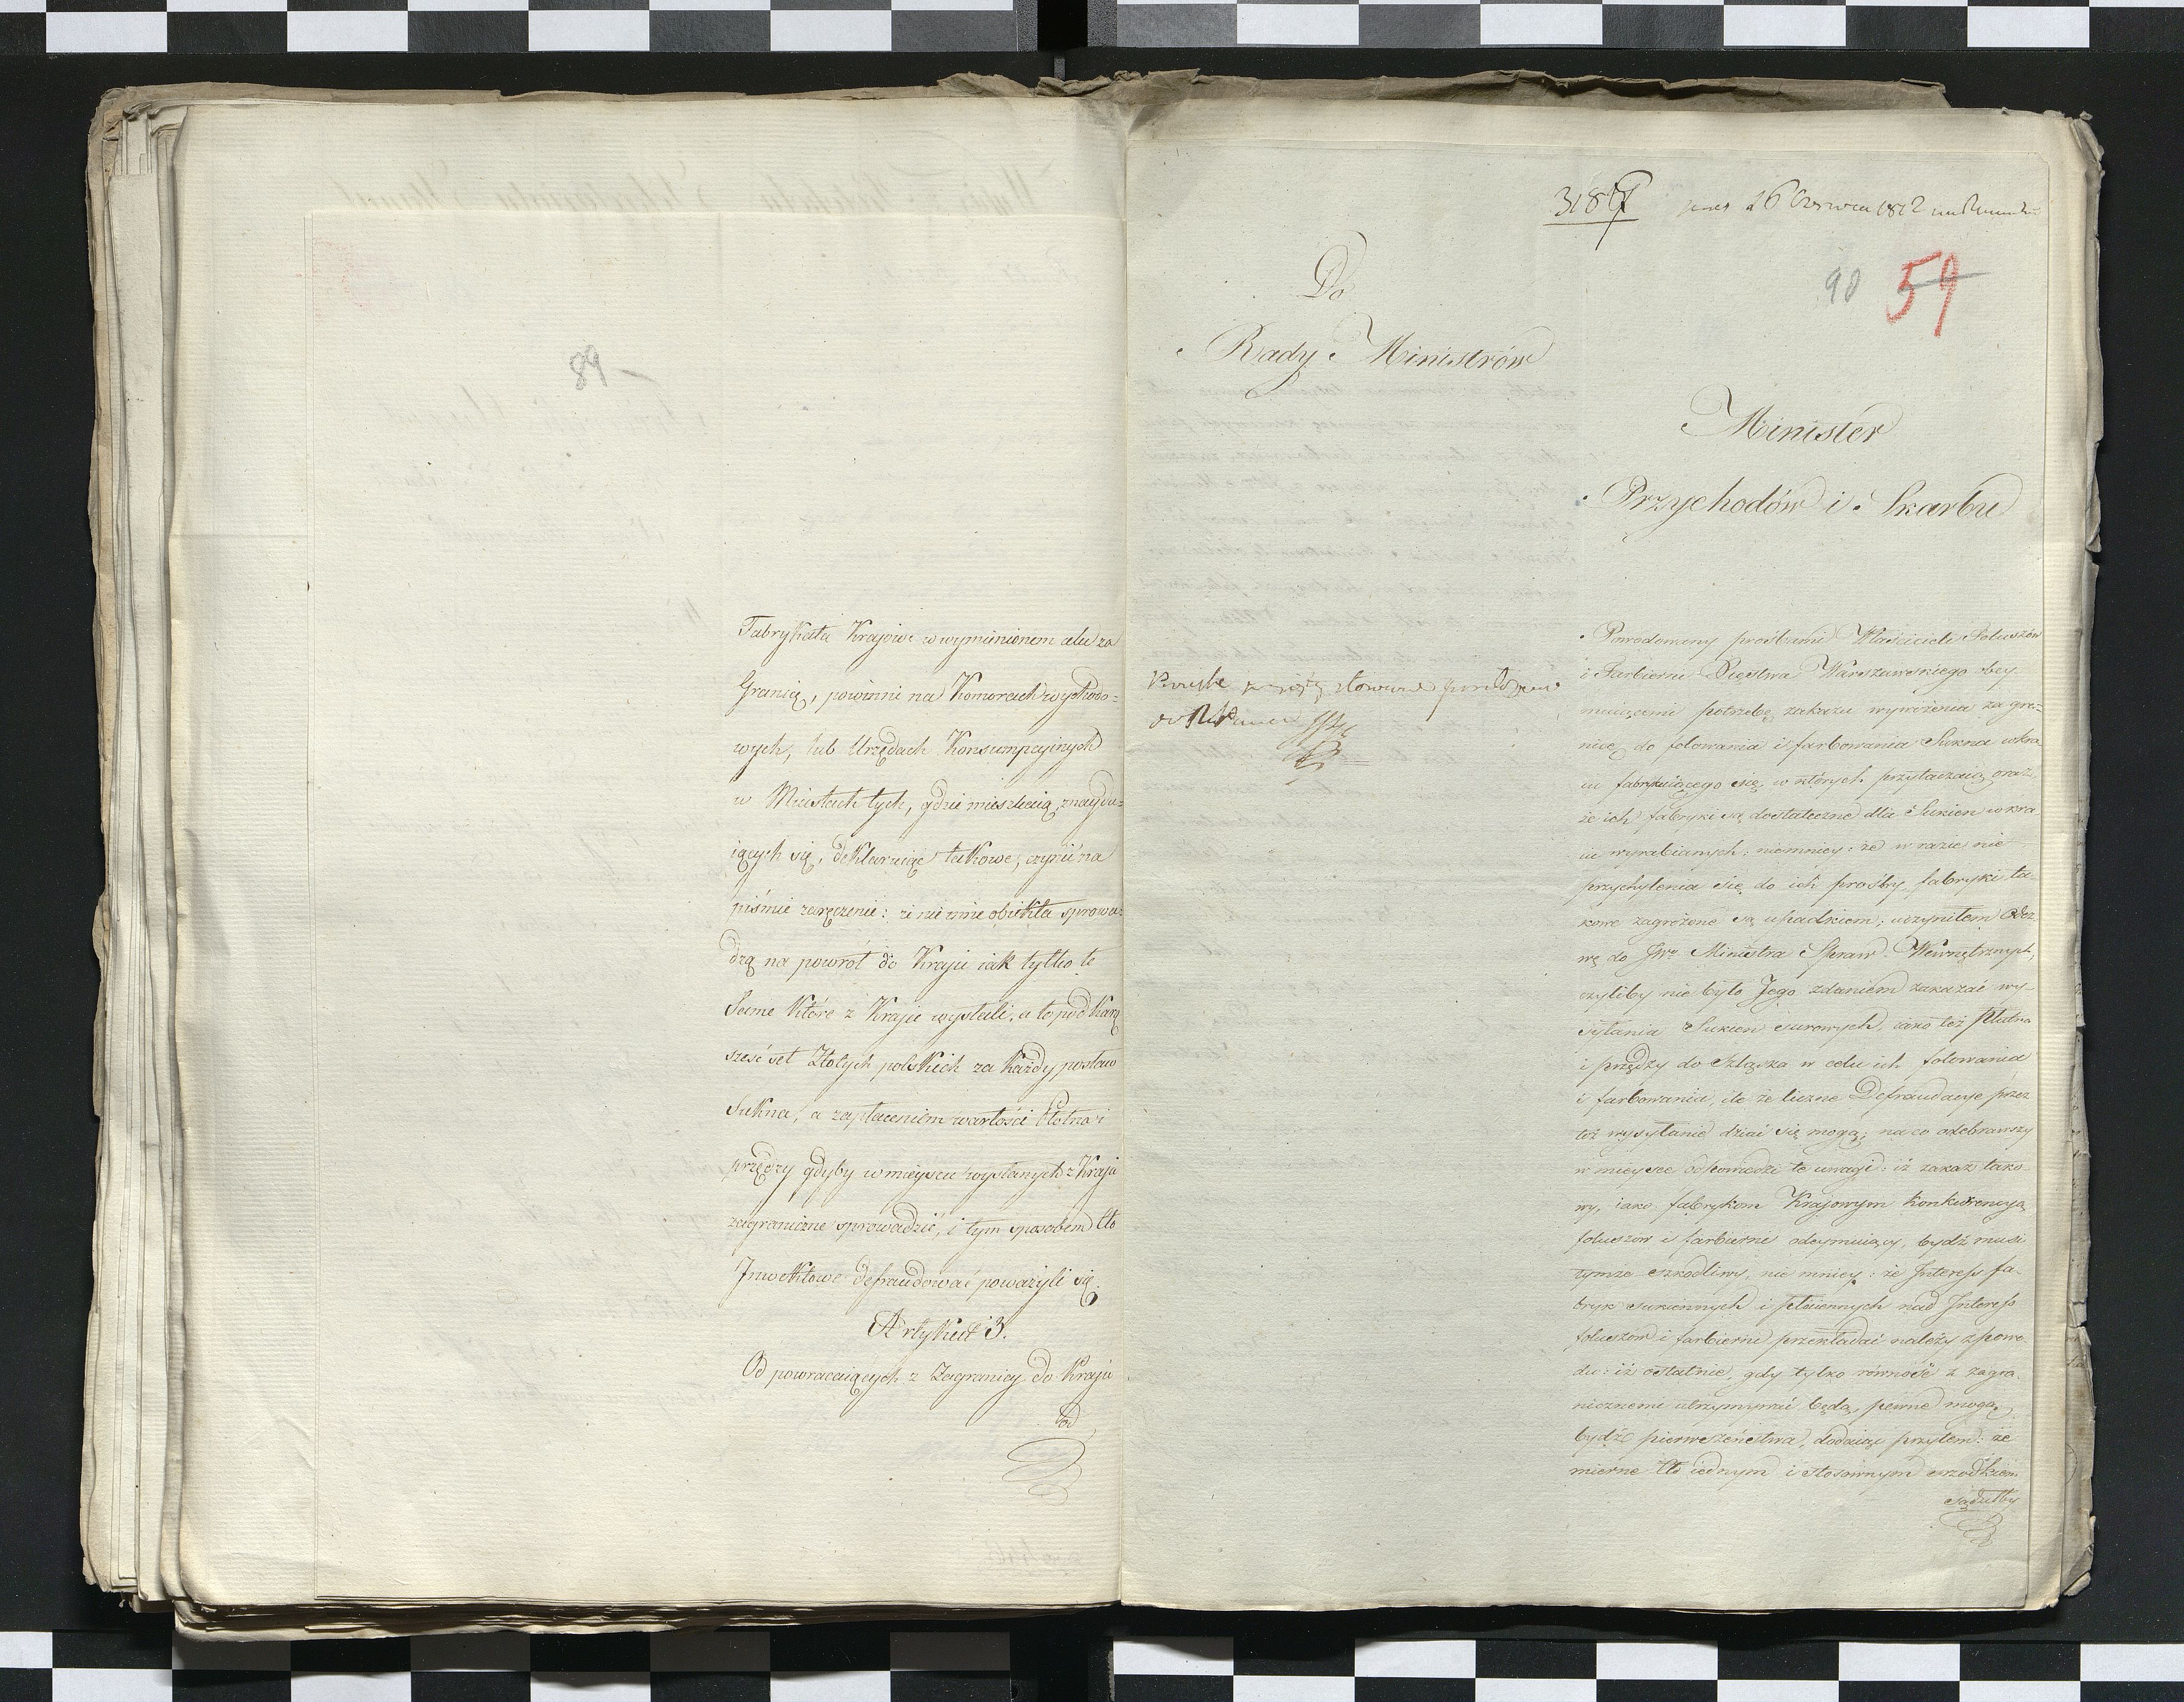 89
Fabrykata Krajowe w wymienionem celu za
Granicę, powinni na Komorach wychodo=
wych, lub Urzędach Konsumpcyinych
w Miastach tych, gdzie mieszkaią, znaydu=
iących się, deklaruiąc takowe, czynić na
piśmie zaręczenie: że nie inne obiekta sprowa=
dzą na powrót do Kraju iak tylko te
Same które z Kraju wysłali, a to pod karą
sześć set Złotych polskich za każdy postaw
Sukna, a zapłaceniem wartości Płótna i
przędzy gdyby w mieysce wysłanych z Kraju
zagraniczne sprowadzić, i tym sposobem Cło
Inwektowe defraudować poważyli się.
Artykuł 3.
Od powracaiących z Zagranicy do Kraju
3187 26 Czerwca 1812
90 59
Do
Rady Ministrów
Minister
Przychodów i Skarbu
Powodowany prośbami Właścicieli Foluszów
i Farbierni Xięstwa Warszawskiego obey
muiącemi potrzebę zakazu wywożenia za gra=
nicę do folowania i farbowania Sukna w kra
iu fabrykuiącego się, w których przytaczaią oraz,
że ich fabryki są dostateczne dla Sukien w kra
iu wyrabianych; niemniey: że w razie nie
przychylenia się do ich prośby fabryki ta=
kowe zagrożone są upadkiem; uczyniłem Odez
wę do JWo Ministra Spraw Wewnętrznych,
czyliby nie było Jego zdaniem zakazać wy=
syłania Sukien surowych, iako też Płutna
i przędzy do Szląska w celu ich folowania
i farbowania, ile że liczne Defraudacye przez
też wysyłanie dziać się mogą; na co odebrawszy
w mieysce odpowiedzi te uwagi: iż zakaz tako=
wy, iako fabrykom Krajowym konkurencyą
foluszów i farbierni odeymuiący, bydź musi
tymże szkodliwy, nie mniey: że Interess fa=
bryk sukiennych i płóciennych nad Interess
foluszów i farbierni przekładać należy z powo
du: iż ostatnie, gdy tylko równość z zagra
nicznemi utrzymywać będą, pewne mogą
bydź pierwszeństwa, dodaiąc przytem: że
mierne Cło iedynym i stosownym srzodkiem
sądziłby